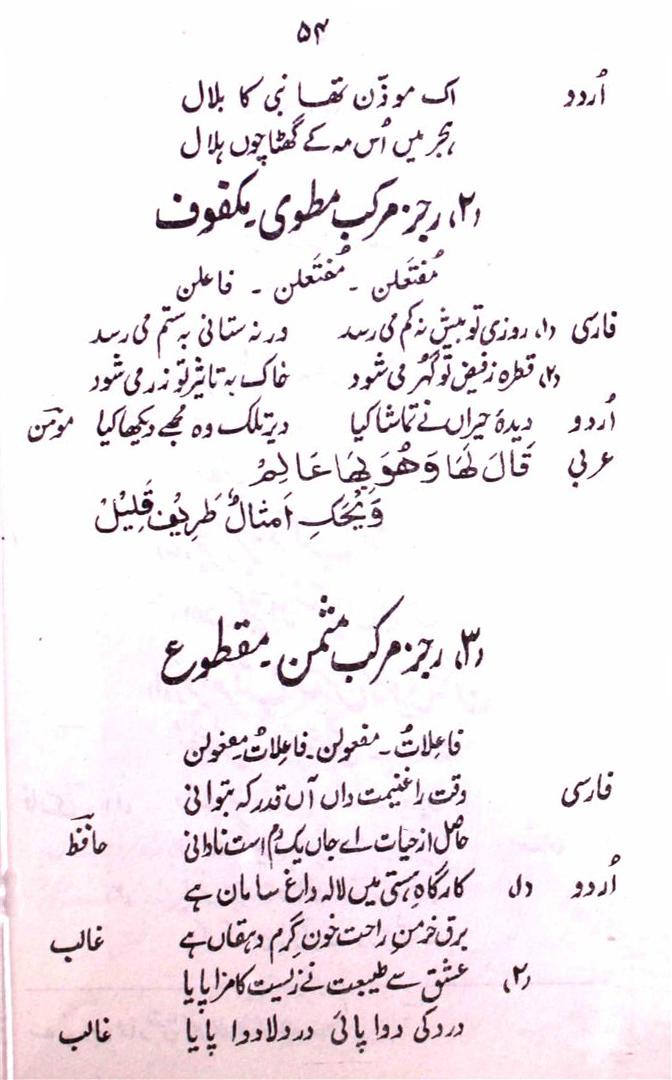 ۵۴
اُردو اک موذّن تھا نبی کا بلال
ہجر میں اُس مہ کے گھٹا چوں ہلال
(۲) رجز مرکب مطوی ۔ مکفوف
مُفتَعلن ۔ مُفتَعلن ۔ فاعلن
فارسی (۱) روزی تو بیش نہ کم می رسد ور نہ ستانی بہ ستم می رسد
(۲) قطرہ ز فیض تو گہر می شود خاک بہ تاثیر تو زر می شود
اُردو دیدۂ حیراں نے تماشا کیا دیر تلک وہ مجھے دیکھا کیا مومن
عربی قَالَ لَهَا وَهُوَ بِهَا عَالِمٌ
وَيْحَكِ اَمثالُ طَرِيفٍ قَلِيْلٌ
(۳) رجز مرکب مثمن ۔ مقطوع
فاعلاتُ ۔ مفعولن ۔ فاعلاتُ ۔ مفعولن
فارسی وقت را غنیمت داں آں قدر کہ بتوانی
حاصل از حیات اے جاں یک دم است نادانی حافظ
اُردو (۱) کارگاہِ ہستی میں لالہ داغ ساماں ہے
برق خرمنِ راحت خون گرم دہقاں ہے غالب
(۲) عشق سے طبیعت نے زیست کا مزا پایا
درد کی دوا پائی درد لا دوا پایا غالب